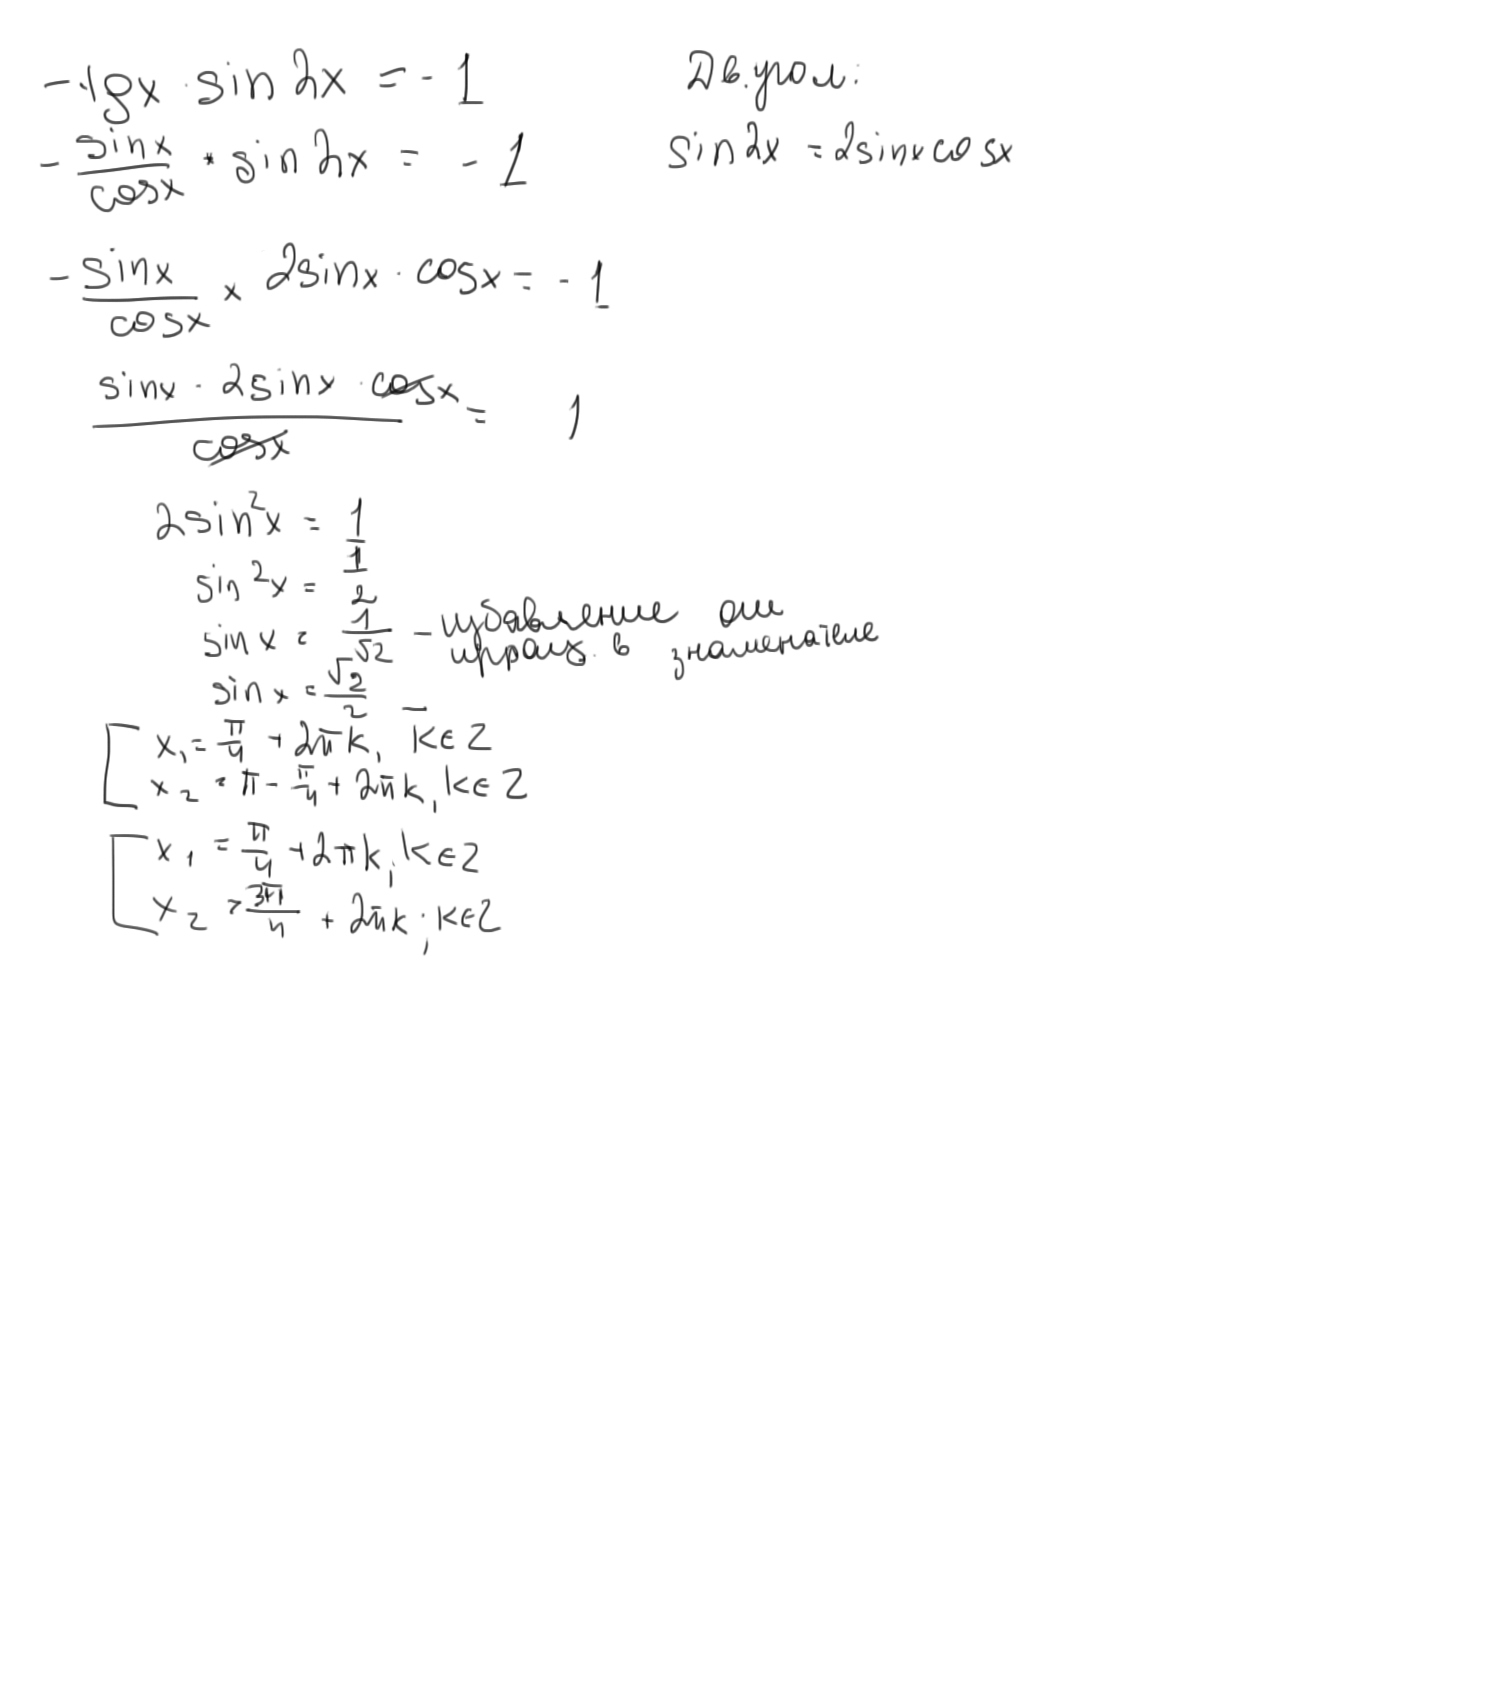 -tgx · sin 2x = -1
Дв. угол:
- sinx/cosx · sin 2x = -1
sin 2x = 2sinx cosx
- sinx/cosx × 2sinx · cosx = -1
sinx · 2sinx · cosx / cosx = 1
2sin²x = 1
sin²x = 1/2
sin x = 1/√2 - избавление от
иррац. в знаменателе
sin x = √2/2
[ x₁ = π/4 + 2πk, k∈Z
x₂ = π - π/4 + 2πk, k∈Z
[ x₁ = π/4 + 2πk; k∈Z
x₂ = 3π/4 + 2πk; k∈Z